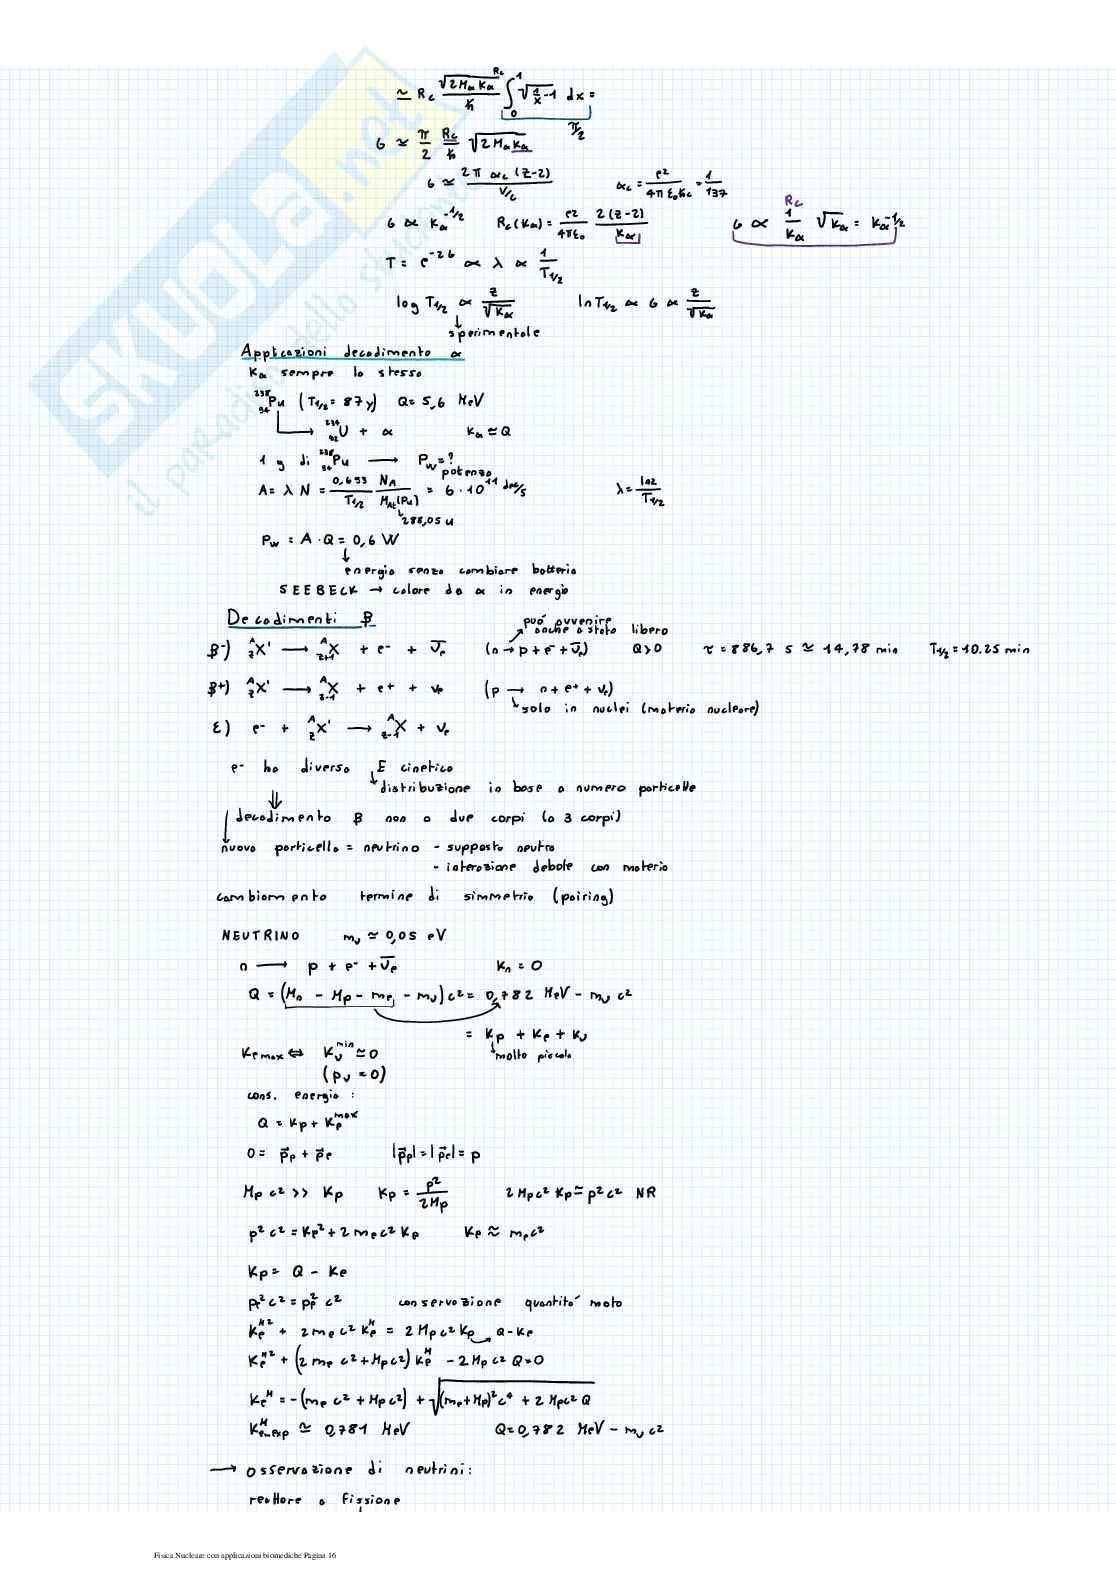 ≃ Rc √(2Mα Kα)/ħ ∫₀¹ √(1/x − 1) dx = Rc
π/2
G ≃ π/2 Rc/ħ √(2Mα Kα)
G ≃ 2π αc (Z-2) / v/c    αc = e²/(4πε₀ħc) = 1/137
G ∝ Kα^(-1/2)    Rc(Kα) = e²/(4πε₀) 2(Z-2)/Kα    G ∝ 1/Kα √Kα = Kα^(-1/2)    Rc
T = e^(-2G) ∝ λ ∝ 1/T1/2
log T1/2 ∝ Z/√Kα    ln T1/2 ∝ G ∝ Z/√Kα
sperimentale
Applcazioni decadimento α
Kα sempre lo stesso
²³⁸₉₄Pu (T1/2 = 87y) Q = 5,6 MeV
²³⁴₉₂U + α    Kα ≃ Q
1 g di ²³⁸₉₄Pu ⟶ Pw = ?
potenza
A = λ N = 0,693/T1/2 NA/MAt(Pu) = 6 · 10¹¹ dec/s    λ = ln2/T1/2
238,05 u
Pw = A · Q = 0,6 W
energia senza cambiare batteria
SEEBECK → calore da α in energia
Decadimenti β
può avvenire
anche a stato libero
β-) ᴬ_Z X' ⟶ ᴬ_Z+1 X + e⁻ + ν̄e    (n → p + e⁻ + ν̄e)    Q>0    τ = 886,7 s ≃ 14,78 min    T1/2 = 10.25 min
β+) ᴬ_Z X' ⟶ ᴬ_Z-1 X + e⁺ + νe    (p → n + e⁺ + νe)
solo in nuclei (materia nucleare)
ε) e⁻ + ᴬ_Z X' ⟶ ᴬ_Z-1 X + νe
e⁻ ha diversa E cinetica
distribuzione in base a numero particelle
⇓
decadimento β non a due corpi (a 3 corpi)
nuova particella = neutrino - supposto neutro
- interazione debole con materia
cambiamento termine di simmetria (pairing)
NEUTRINO    mν ≃ 0,05 eV
n ⟶ p + e⁻ + ν̄e    Kn = 0
Q = (Mn − Mp − me − mν) c² = 0,782 MeV − mν c²
= Kp + Ke + Kν
molto piccola
Ke max ⇔ Kν^min ≃ 0
(pν = 0)
cons. energia :
Q = Kp + Ke^max
0 = p⃗p + p⃗e    |p⃗p| = |p⃗e| = p
Mp c² >> Kp    Kp = p²/2Mp    2 Mp c² Kp ≃ p² c² NR
p² c² = Ke² + 2 me c² Ke    Ke ≈ me c²
Kp = Q − Ke
pe² c² = pp² c²    conservazione quantità moto
Ke^M² + 2 me c² Ke^M = 2 Mp c² Kp → Q − Ke
Ke^M² + (2 me c² + Mp c²) Ke^M − 2 Mp c² Q = 0
Ke^M = −(me c² + Mp c²) + √((me + Mp)² c⁴ + 2 Mp c² Q)
Ke-exp^M ≃ 0,781 MeV    Q = 0,782 MeV − mν c²
→ osservazione di neutrini :
reattore a fissione
Fisica Nucleare con applicazioni biomediche Pagina 16
SKUOLA.net
il paradiso dello studente